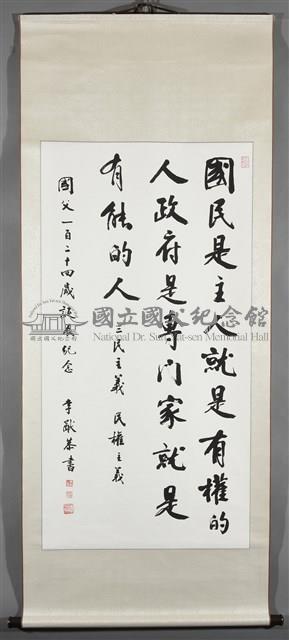 國民是主人就是有權的
人政府是專門家就是
有能的人
三民主義 民權主義
國父一百二十四歲誕辰紀念
李猷恭書
國立國父紀念館
National Dr. Sun Yat-sen Memorial Hall